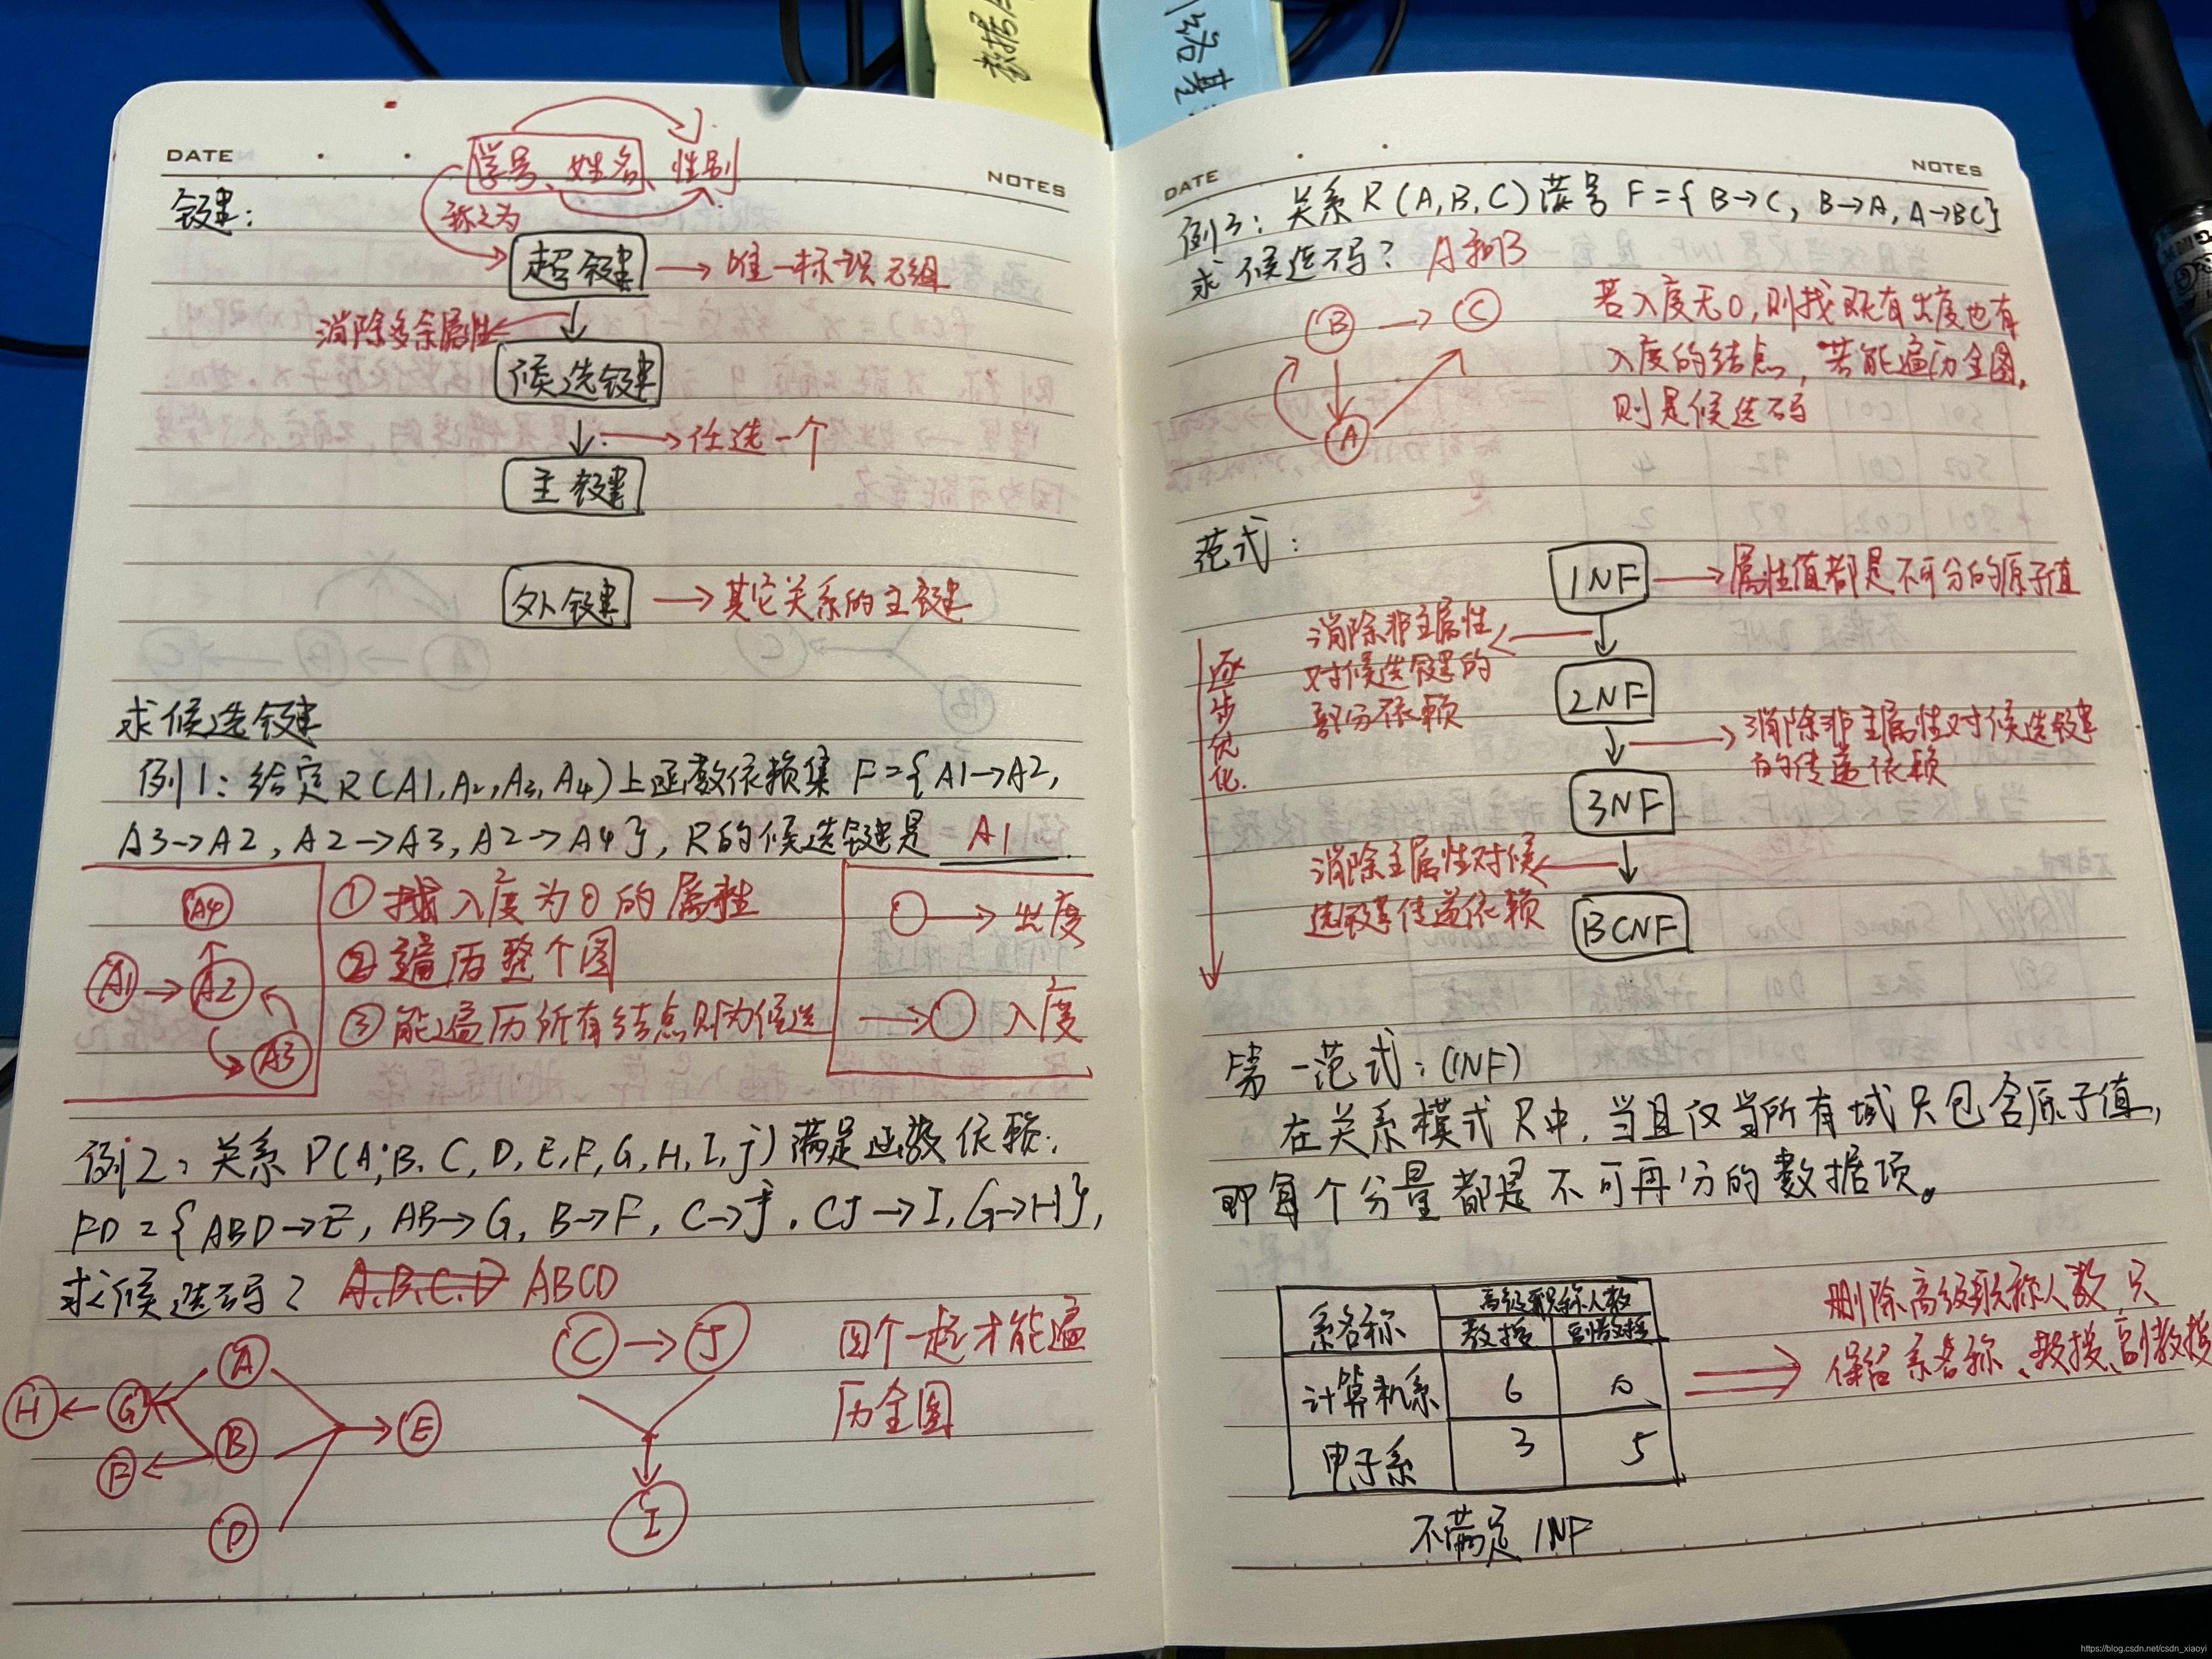 数据
络基
DATE
NOTES
学号、姓名、性别
键：
称之为
超键
唯一标识元组
消除多余属性
候选键
任选一个
主键
外键
其它关系的主键
求候选键
例1：给定R(A1,A2,A3,A4)上函数依赖集 F={A1→A2,
A3→A2, A2→A3, A2→A4}, R的候选键是 A1
A4
A1→A2
A3
① 找入度为0的属性
② 遍历整个图
③ 能遍历所有结点则为候选
→ 出度
→ 入度
例2：关系 P(A,B,C,D,E,F,G,H,I,J)满足函数依赖.
FD={ABD→E, AB→G, B→F, C→J, CJ→I, G→H},
求候选码？ A.B.C.D ABCD
A
H
G
B
E
F
D
C → J
I
四个一起才能遍
历全图
DATE
NOTES
例3：关系R(A,B,C)满足 F={B→C, B→A, A→BC}
求候选码？ A和B
B → C
A
若入度无0,则找既有出度也有
入度的结点，若能遍历全图，
则是候选码
范式：
1NF
属性值都是不可分的原子值
消除非主属性
对候选键的
部分依赖
2NF
消除非主属性对候选键
的传递依赖
3NF
消除主属性对候
选键传递依赖
BCNF
逐步优化
第一范式：(1NF)
在关系模式R中，当且仅当所有域只包含原子值，
即每个分量都是不可再分的数据项。
系名称 高级职称人数
教授 副教授
计算机系 6 10
电子系 3 5
不满足 1NF
删除高级职称人数,只
保留系名称、教授、副教授
https://blog.csdn.net/csdn_xiaoyi